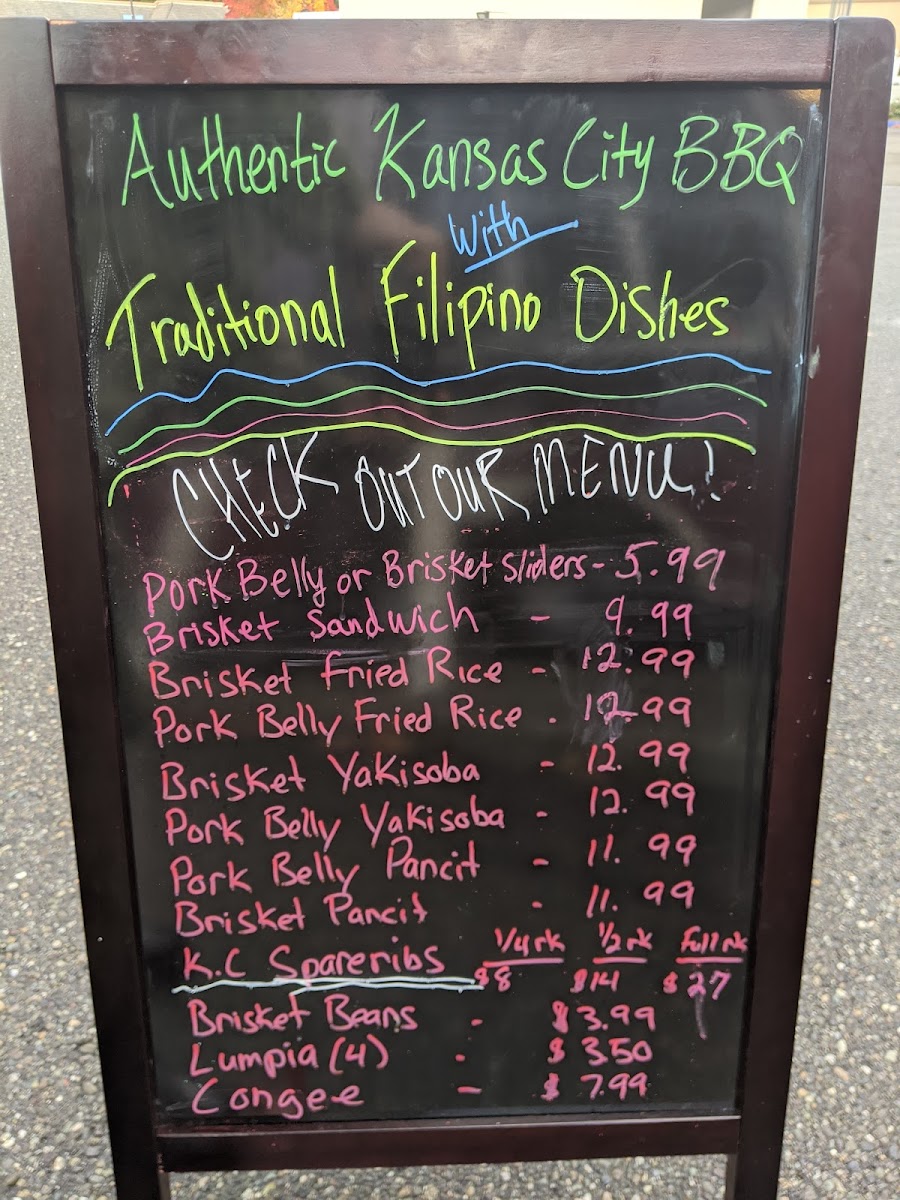 Authentic Kansas City BBQ
with
Traditional Filipino Dishes
CHECK OUT OUR MENU!
Pork Belly or Brisket Sliders - 5.99
Brisket Sandwich - 9.99
Brisket Fried Rice - 12.99
Pork Belly Fried Rice - 12.99
Brisket Yakisoba - 12.99
Pork Belly Yakisoba - 12.99
Pork Belly Pancit - 11.99
Brisket Pancit - 11.99
K.C Spareribs 1/4 rk $8 1/2 rk $14 Full rk $27
Brisket Beans - $3.99
Lumpia (4) - $3.50
Congee - $7.99